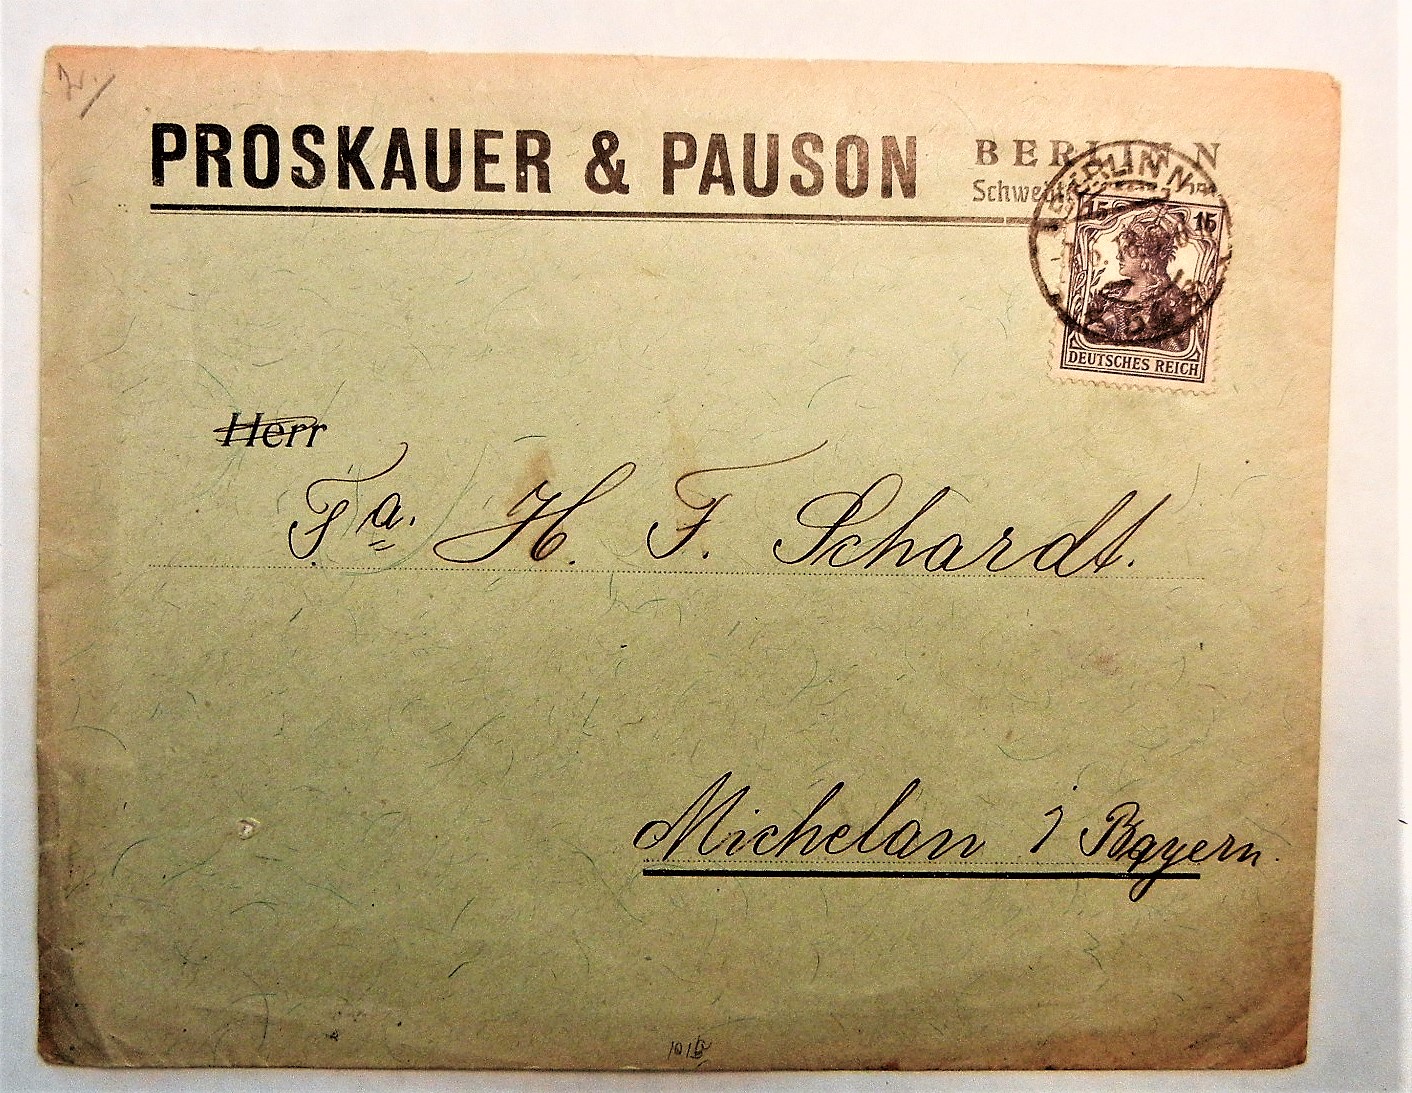 PROSKAUER & PAUSON
BERLIN N
BERLIN N
15 15
DEUTSCHES REICH
Herr
Fa. H. F. Schardt.
Michelau i Bayern.